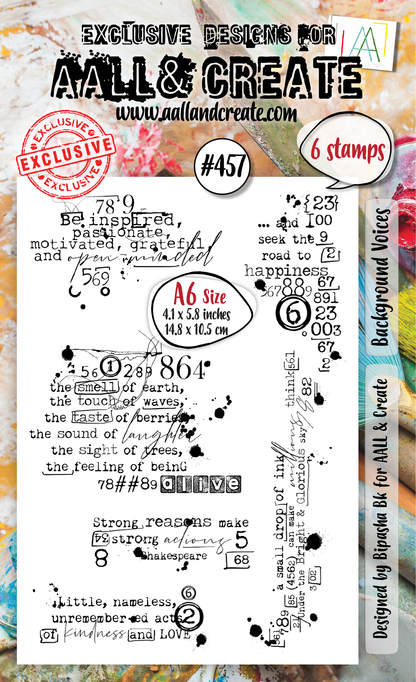 EXCLUSIVE DESIGNS FOR
AALL & CREATE
www.aallandcreate.com
EXCLUSIVE
EXCLUSIVE
EXCLUSIVE
#457
6 stamps
78 9
Be inspired,
passionate,
motivated, grateful,
and open-minded
569
{23}
... and 100
seek the 9
road to 2
happiness
67
891
6
23
003
67
2
A6 Size
4.1 x 5.8 inches
14.8 x 10.5 cm
56 1 289 864
the smell of earth,
the touch of waves,
the taste of berries
the sound of laughter
the sight of trees,
the feeling of beinG
78##89 alive
Strong reasons make
strong actions 5
8 Shakespeare 68
6
Little, nameless,
unremembered acts 2
of kindness and LOVE
a small drop of ink
can make
millions think
Under the Bright & Glorious sky
82
Background Voices
Designed by Bipasha Bk for AALL & Create